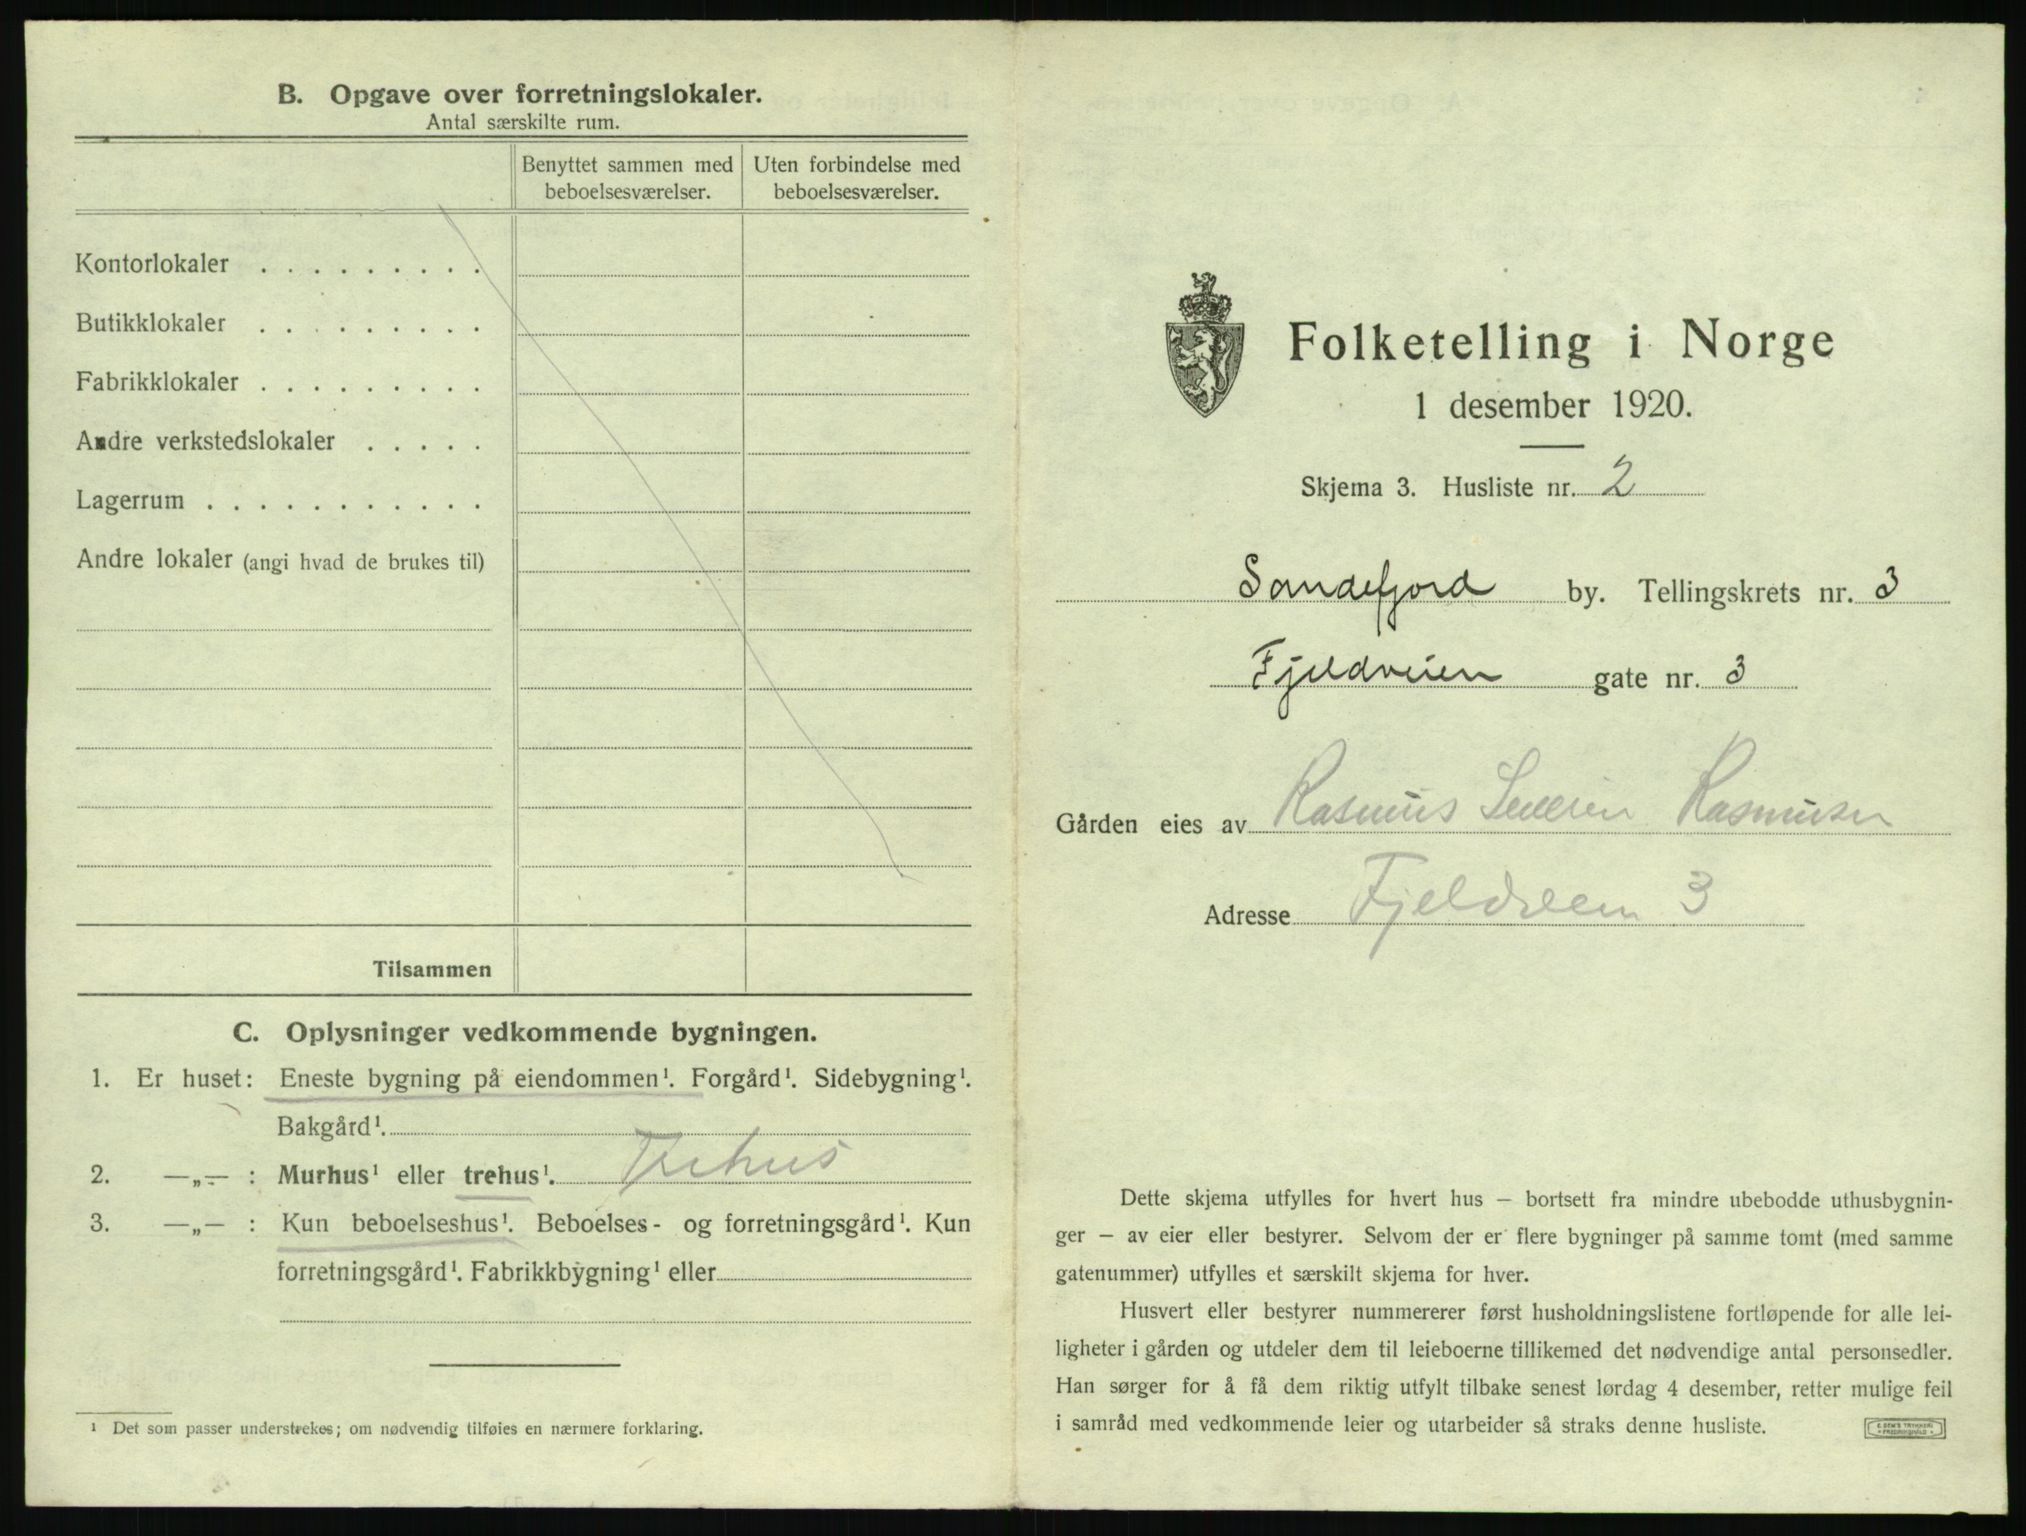 B. Opgave over forretningslokaler.
Antal særskilte rum.
Benyttet sammen med beboelsesværelser.
Uten forbindelse med beboelsesværelser.
Kontorlokaler . . . . . . . . .
Butikklokaler . . . . . . . . .
Fabrikklokaler . . . . . . . . .
Andre verkstedslokaler . . . . .
Lagerrum . . . . . . . . . . .
Andre lokaler (angi hvad de brukes til)
Tilsammen
C. Oplysninger vedkommende bygningen.
1. Er huset: Eneste bygning på eiendommen¹. Forgård¹. Sidebygning¹.
Bakgård¹.
2. —„— : Murhus¹ eller trehus¹. Trehus
3. —„— : Kun beboelseshus¹. Beboelses- og forretningsgård¹. Kun
forretningsgård¹. Fabrikkbygning¹ eller
¹ Det som passer understrekes; om nødvendig tilføies en nærmere forklaring.
Folketelling i Norge
1 desember 1920.
Skjema 3. Husliste nr. 2
Sandefjord by. Tellingskrets nr. 3
Fjeldveien gate nr. 3
Gården eies av Rasmus Severin Rasmusen
Adresse Fjeldveien 3
Dette skjema utfylles for hvert hus — bortsett fra mindre ubebodde uthusbygnin-
ger — av eier eller bestyrer. Selvom der er flere bygninger på samme tomt (med samme
gatenummer) utfylles et særskilt skjema for hver.
Husvert eller bestyrer nummererer først husholdningslistene fortløpende for alle lei-
ligheter i gården og utdeler dem til leieboerne tillikemed det nødvendige antal personsedler.
Han sørger for å få dem riktig utfylt tilbake senest lørdag 4 desember, retter mulige feil
i samråd med vedkommende leier og utarbeider så straks denne husliste.